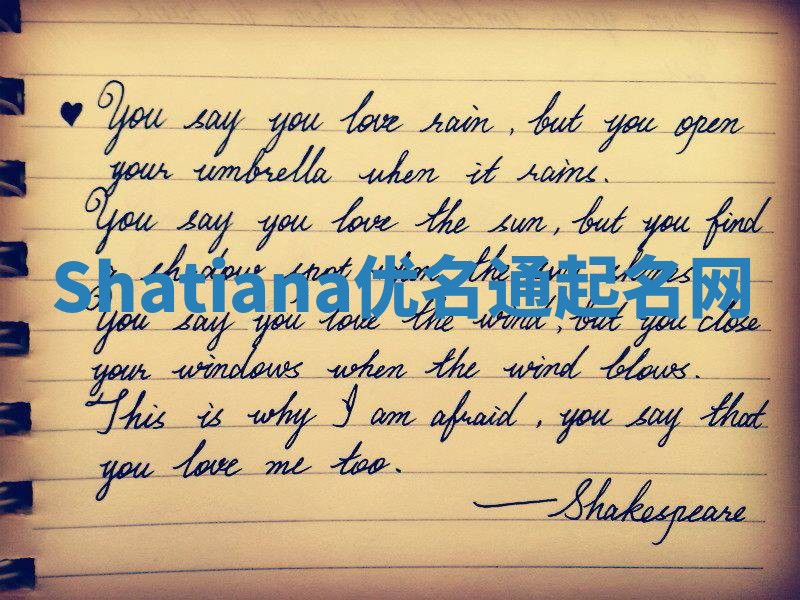 ♥ You say you love rain, but you open
your umbrella when it rains.
You say you love the sun, but you find
a shadow spot when the sun shines.
Shatiana优名通起名网
You say you love the wind, but you close
your windows when the wind blows.
This is why I am afraid, you say that
you love me too.
—Shakespeare